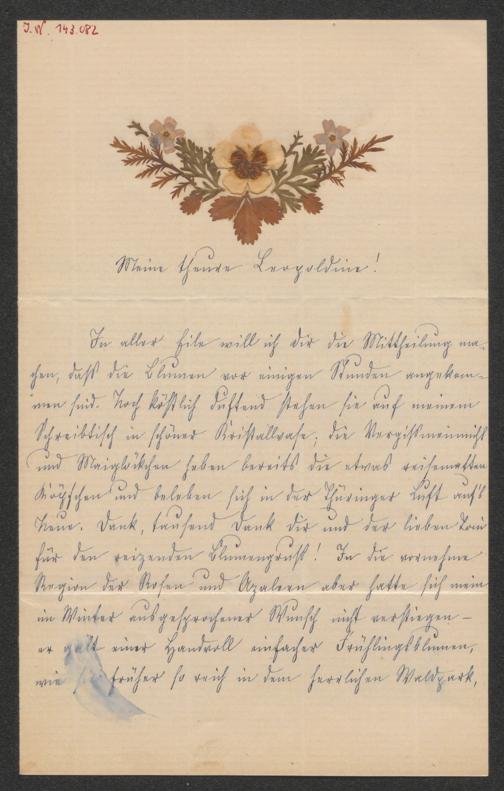 I.N. 143.082
Meine theure Leopoldine!
In aller Eile will ich dir die Mittheilung ma-
chen, daß die Blumen vor einigen Stunden angekom-
men sind. Noch köstlich duftend stehen sie auf meinem
Schreibtisch in schöner Kristallvase; die Vergißmeinnicht
und Maiglöckchen heben bereits die etwas reisematten
Köpfchen und beleben sich in der Thüringer Luft auf's
Neue. Dank, tausend Dank dir und der lieben
für den reizenden Blumengruß! In die vornehme
Region der Rosen und Azaleen aber hatte sich mein
im Winter ausgesprochener Wunsch nicht verstiegen –
er galt einer Handvoll einfacher Frühlingsblumen,
wie sie früher so reich in dem herrlichen Waldpark,